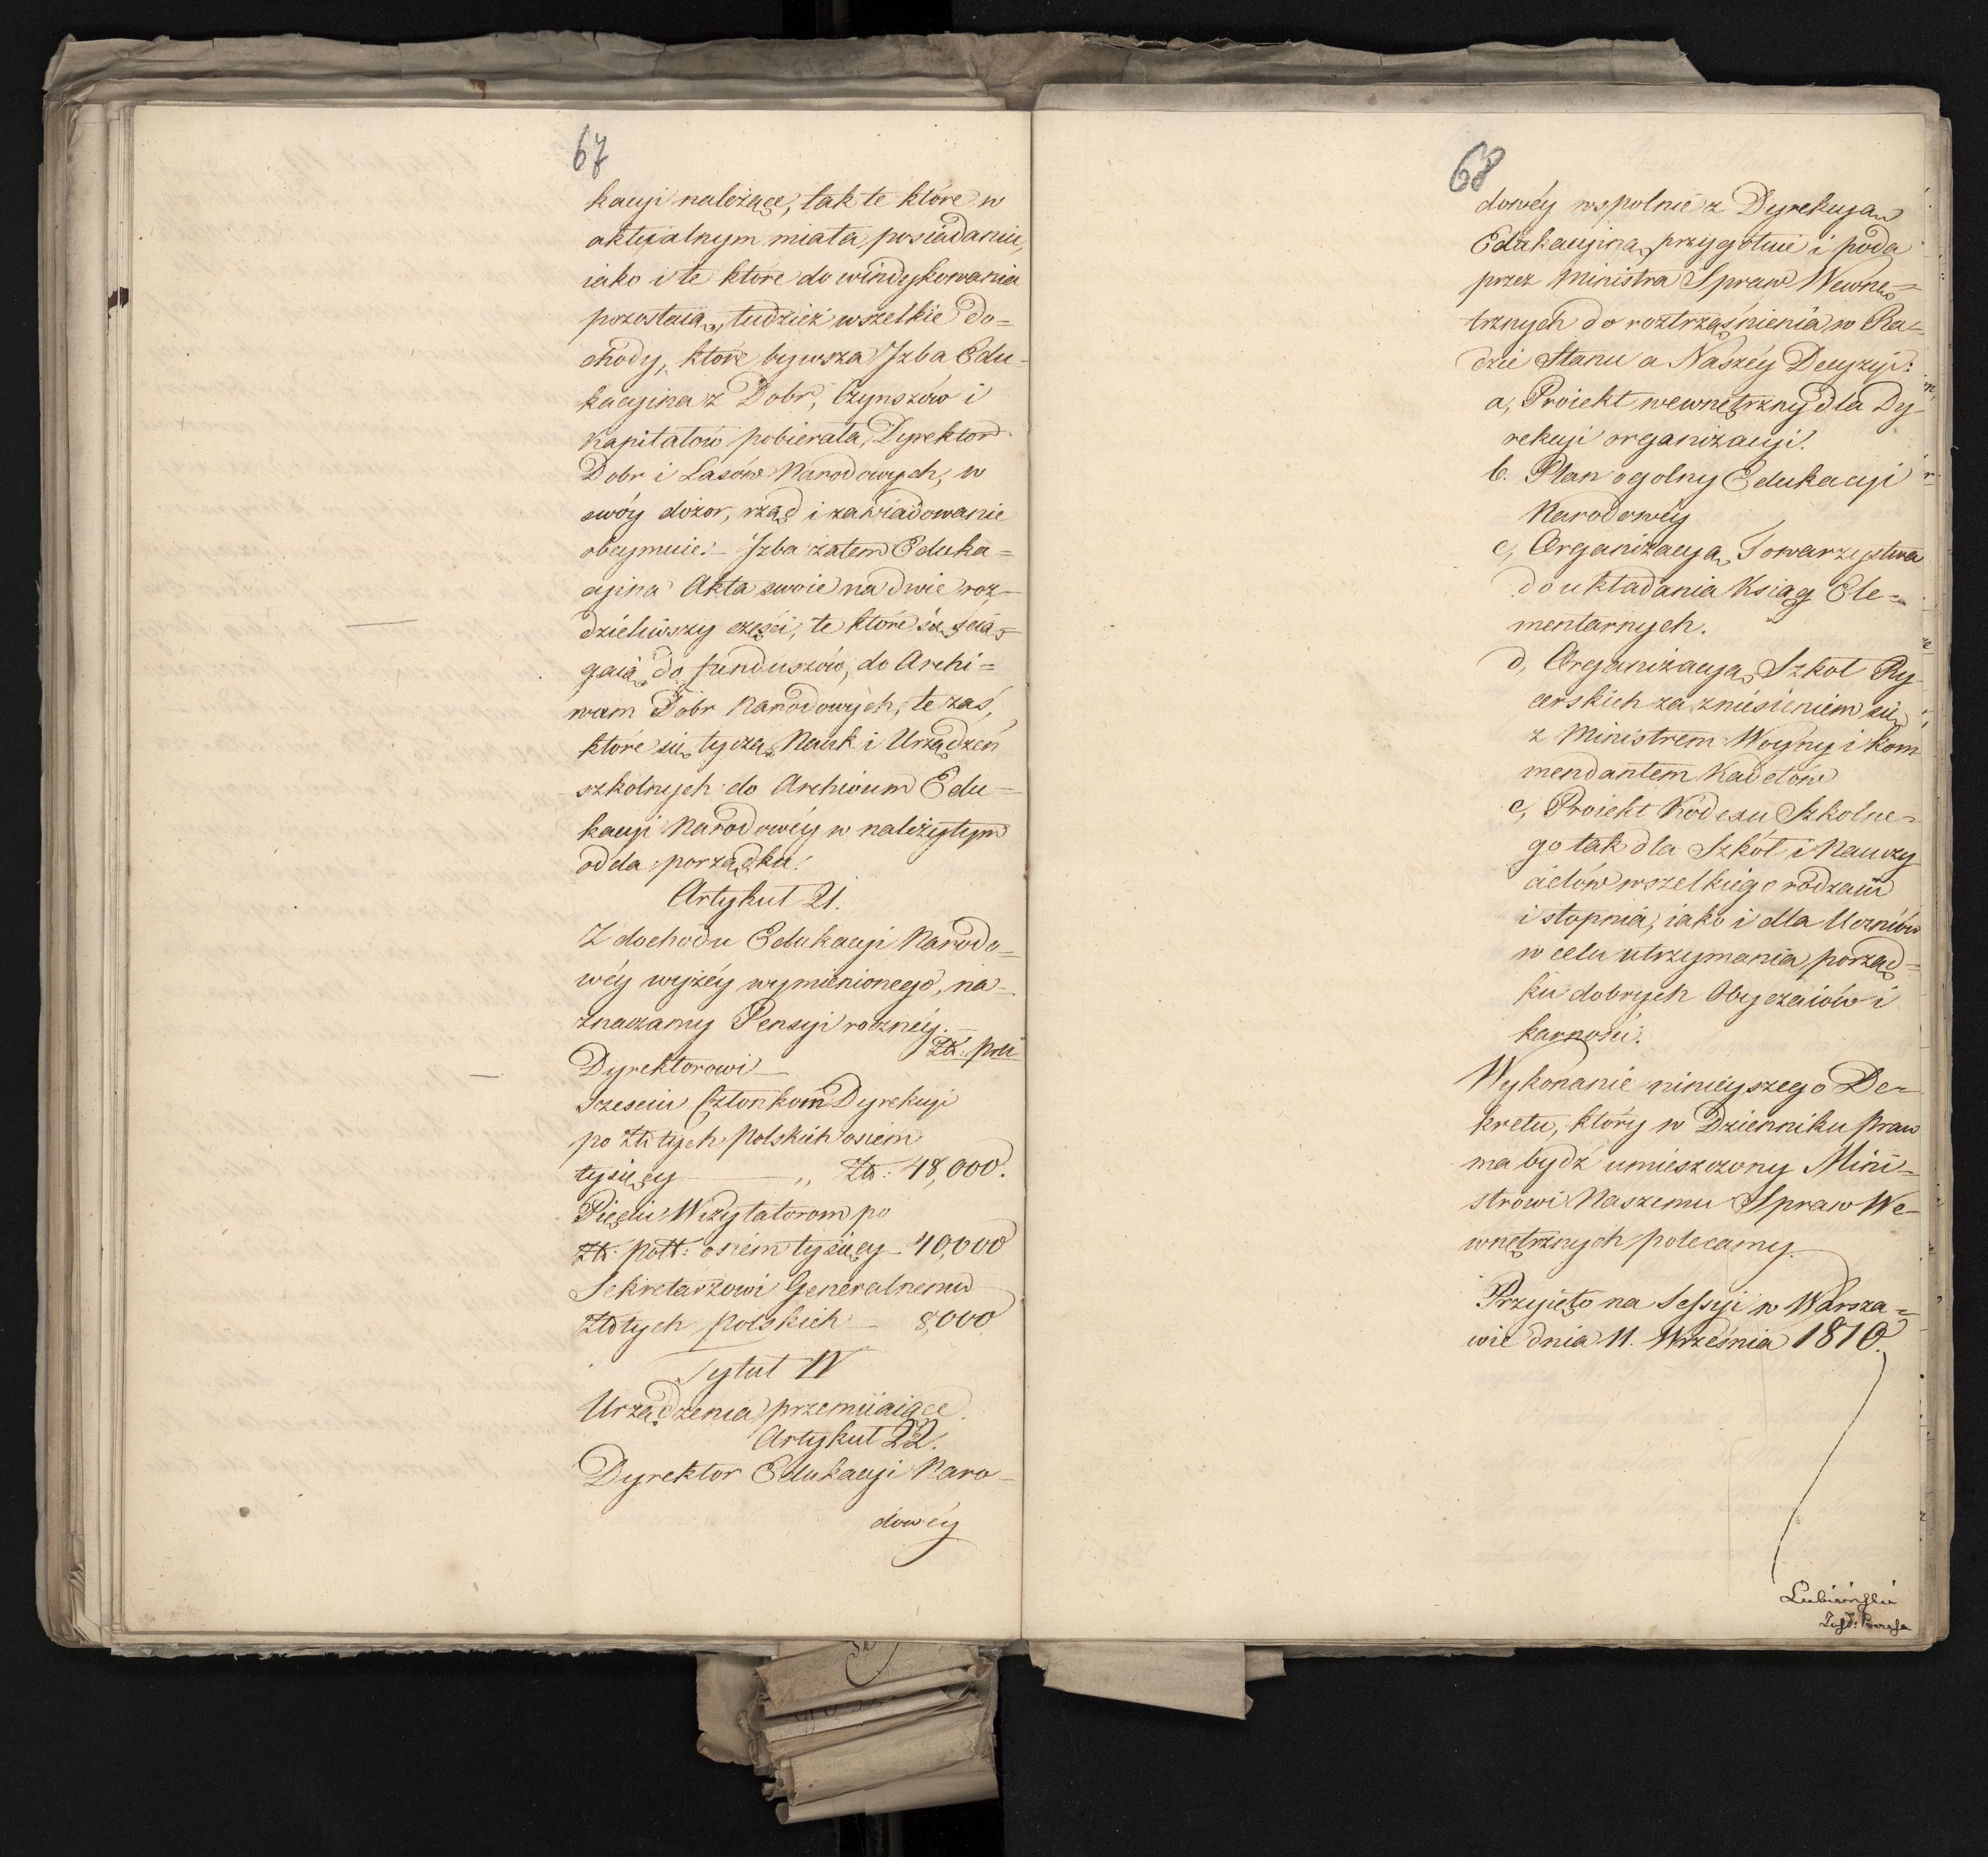 67
kacyi należące, tak te które w
aktualnym miała posiadaniu,
iako i te które do windykowania
pozostaią, tudzież wszelkie do=
chody, które bywsza Izba Edu-
kacyina z Dobr, Czynszów i
Kapitałów pobierała, Dyrektor
Dobr i Lasów Narodowych, w
swóy dozor, rząd i zawiadowanie
obeymuie. - Izba zatem Eduka=
cyina Akta swoie na dwie roz-
dzieliwszy części, te które się ścią-
gaią do funduszów, do Archi=
wum Dobr Narodowych, te zaś,
które się tyczą Nauk i Urządzeń
szkolnych do Archivum Edu-
kacyi Narodowéy w należytym
odda porządku.
Artykuł 21.
Z dochodu Edukacyi Narodo=
wéy wyżéy wymienionego, na-
znaczamy Pensyi rocznéy.
Zł: pol:
Dyrektorowi —
Sześciu Członkom Dyrekcyi
po złłtych Polskich osiem
tysięcy — „ Zł: 48,000.
Pięciu Wizytatorom po
Zł: Poll: osiem tysięcy - 40,000
Sekretarzowi Generalnemu
złłtych polskich - 8,000
Tytuł IV
Urządzenia przemiiaiące.
Artykuł 22.
Dyrektor Edukacyi Naro-
dowéy
68
dowéy wspolnie z Dyrekcyą
Edukacyiną przygotuie i poda
przez Ministra Spraw Wewnę=
trznych do roztrząśnienia w Ra-
dzie Stanu a Naszéy Decyzyi:
a, Proiekt wewnętrzny dla Dy-
rekcyi organizacyi.
b. Plan ogolny Edukacyi
Narodowéy
c, Organizacyą Towarzystwa
do układania Ksiąg Ele-
mentarnych.
d, Organizacyą Szkoł Ry-
cerskich za zniesieniem się
z Ministrem Woyny i Kom
mendantem Kadetów
e, Proiekt Kodexu Szkolne-
go tak dla Szkół i Nauczy
cielów wszelkiego rodzaiu
i stopnia, iako i dla Uczniów
w celu utrzymania porząd=
ku dobrych Obyczaiów i
karności.
Wykonanie ninieyszego De-
kretu, który w Dzienniku praw
ma bydź umieszczony Mini-
strowi Naszemu Spraw We-
wnętrznych polecamy.
Przyięto na Sessyi w Warsza=
wie dnia 11. Września 1810.
Lubieński